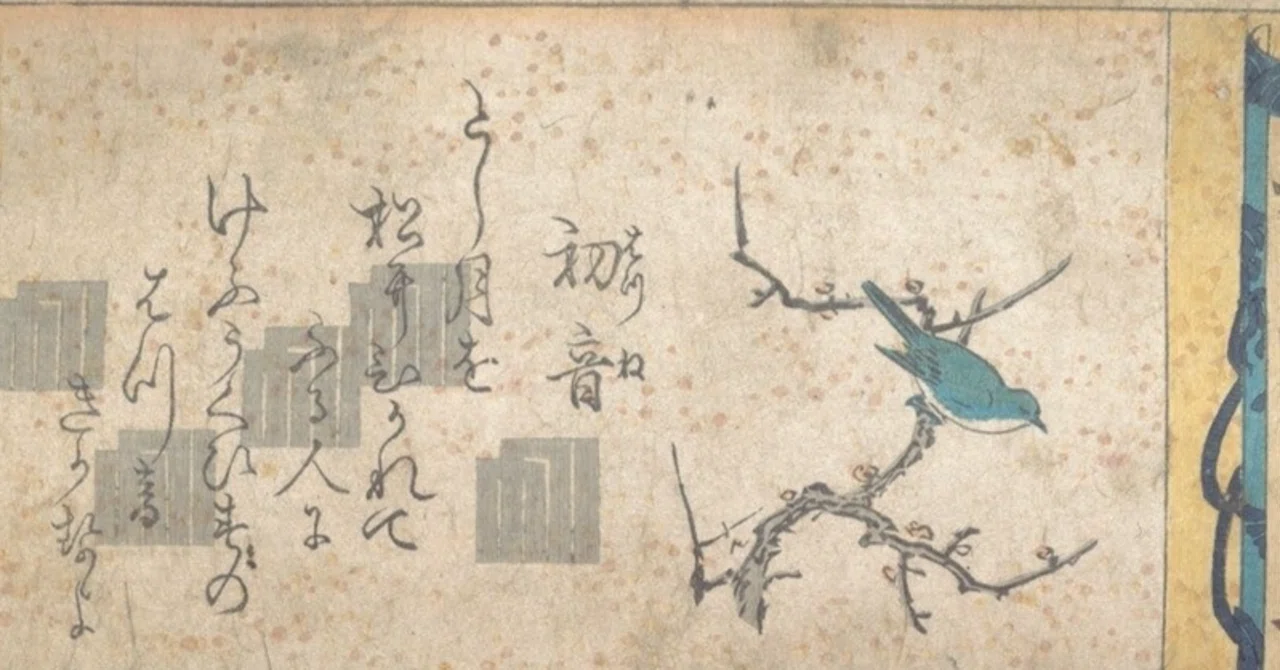 初音
はつね
とし月を
松にひかれて
ふる人に
けふうぐひすの
はつ
音
きかせよ